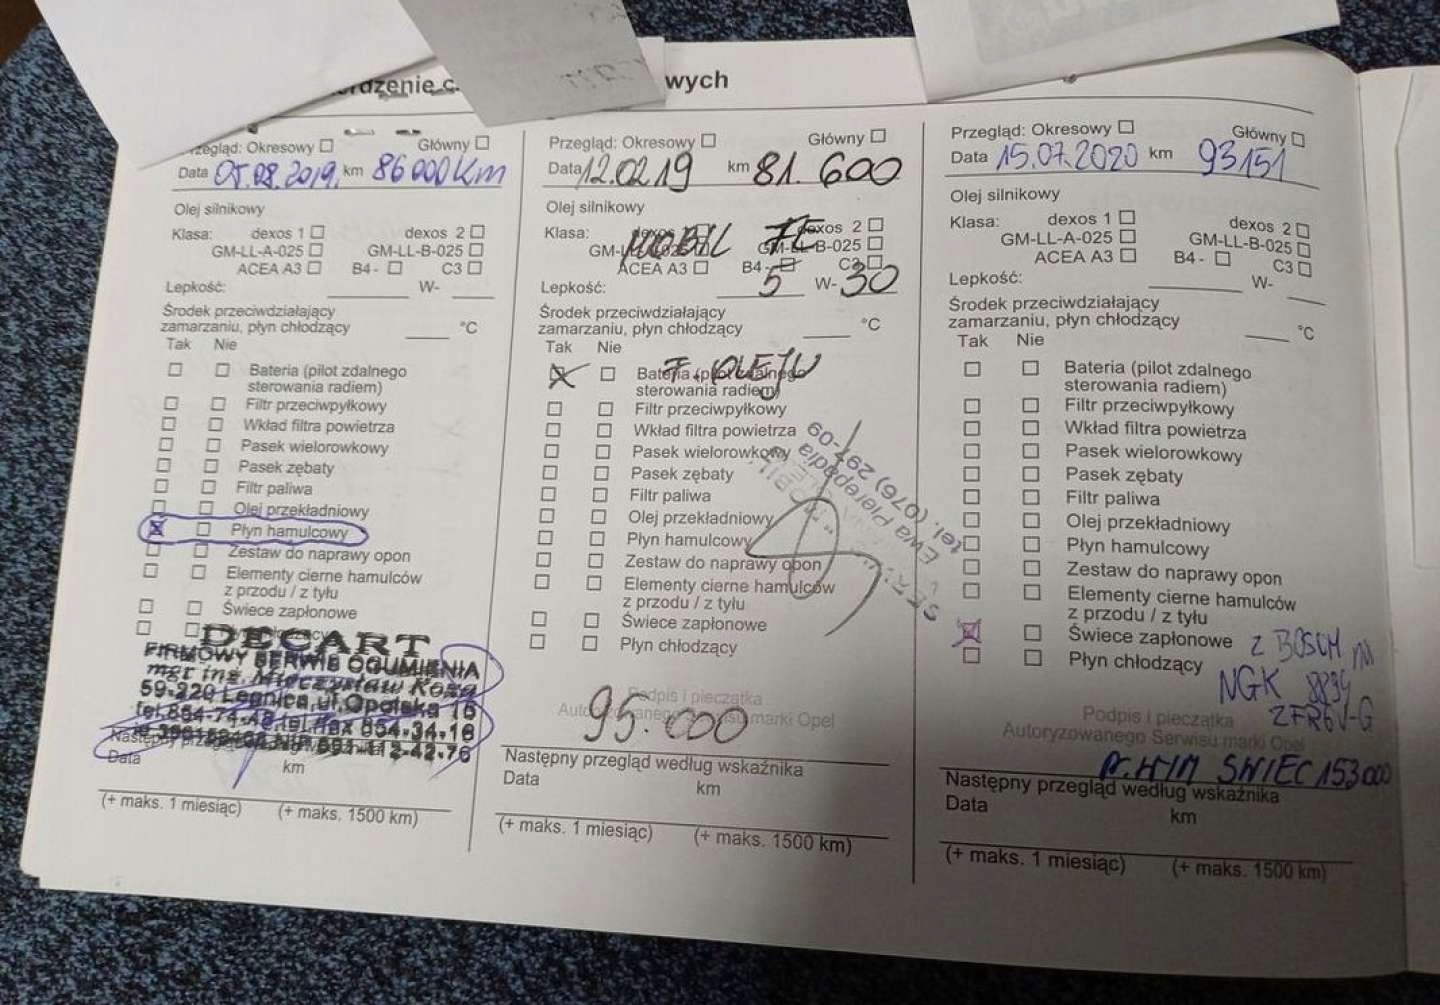 wych
Przegląd: Okresowy Główny
Data 05.08.2019. km 86 000 Km
Olej silnikowy
Klasa: dexos 1 dexos 2
GM-LL-A-025 GM-LL-B-025
ACEA A3 B4 - C3
Lepkość: W-
Środek przeciwdziałający
zamarzaniu, płyn chłodzący °C
Tak Nie
Bateria (pilot zdalnego
sterowania radiem)
Filtr przeciwpyłkowy
Wkład filtra powietrza
Pasek wielorowkowy
Pasek zębaty
Filtr paliwa
Olej przekładniowy
Płyn hamulcowy
Zestaw do naprawy opon
Elementy cierne hamulców
z przodu / z tyłu
Świece zapłonowe
DECART
FIRMOWY SERWIS OGUMIENIA
mgr inż. Mieczysław Koza
59-220 Legnica, ul. Opolska 16
tel. 854-74-48 tel./fax 854-34-18
Data km
(+ maks. 1 miesiąc) (+ maks. 1500 km)
Przegląd: Okresowy Główny
Data 12.02.19 km 81. 600
Olej silnikowy
Klasa: MOBIL dexos 2
GM-LL-B-025
ACEA A3 B4 - C3
Lepkość: 5 W- 30
Środek przeciwdziałający
zamarzaniu, płyn chłodzący °C
Tak Nie
Bateria (pilot zdalnego
F. OLEJU
sterowania radiem)
Filtr przeciwpyłkowy
Wkład filtra powietrza
Pasek wielorowkowy
Pasek zębaty
Filtr paliwa
Olej przekładniowy
Płyn hamulcowy
Zestaw do naprawy opon
Elementy cierne hamulców
z przodu / z tyłu
Świece zapłonowe
Płyn chłodzący
Ewa Pierepadia
tel. (076) 297-09
Podpis i pieczątka
Autoryzowanego Serwisu marki Opel
95.000
Następny przegląd według wskaźnika
Data km
(+ maks. 1 miesiąc) (+ maks. 1500 km)
Przegląd: Okresowy Główny
Data 15.07.2020 km 93151
Olej silnikowy
Klasa: dexos 1 dexos 2
GM-LL-A-025 GM-LL-B-025
ACEA A3 B4 - C3
Lepkość: W-
Środek przeciwdziałający
zamarzaniu, płyn chłodzący °C
Tak Nie
Bateria (pilot zdalnego
sterowania radiem)
Filtr przeciwpyłkowy
Wkład filtra powietrza
Pasek wielorowkowy
Pasek zębaty
Filtr paliwa
Olej przekładniowy
Płyn hamulcowy
Zestaw do naprawy opon
Elementy cierne hamulców
z przodu / z tyłu
Świece zapłonowe Z BOSCH NA
Płyn chłodzący NGK 8834
ZFR6V-G
Podpis i pieczątka
Autoryzowanego Serwisu marki Opel
ŚWIEC 153 000
Następny przegląd według wskaźnika
Data km
(+ maks. 1 miesiąc) (+ maks. 1500 km)